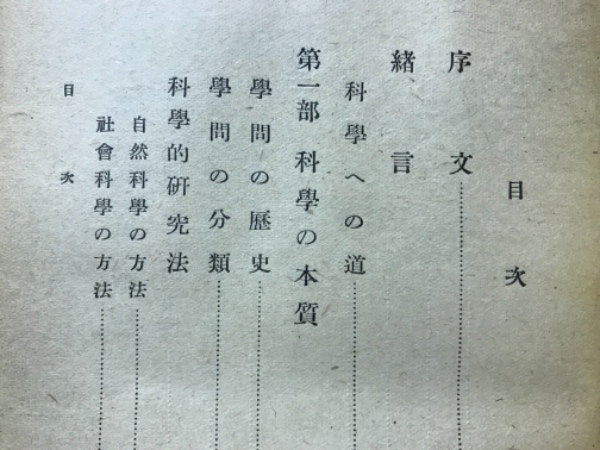 目次
序文
緒言
科學への道
第一部 科學の本質
學問の歷史
學問の分類
科學的硏究法
自然科學の方法
社會科學の方法
目次